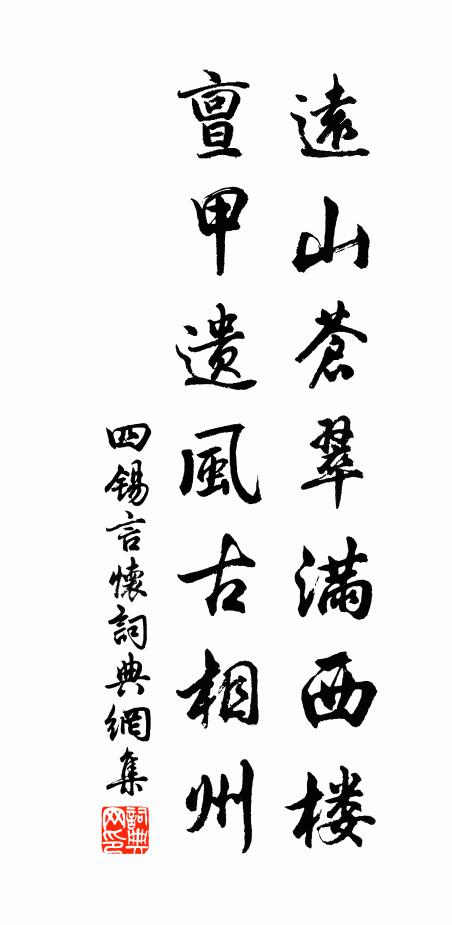 遠山蒼翠滿西楼
亶甲遺風古相州
四錫言懷詞典網集
詞典网印